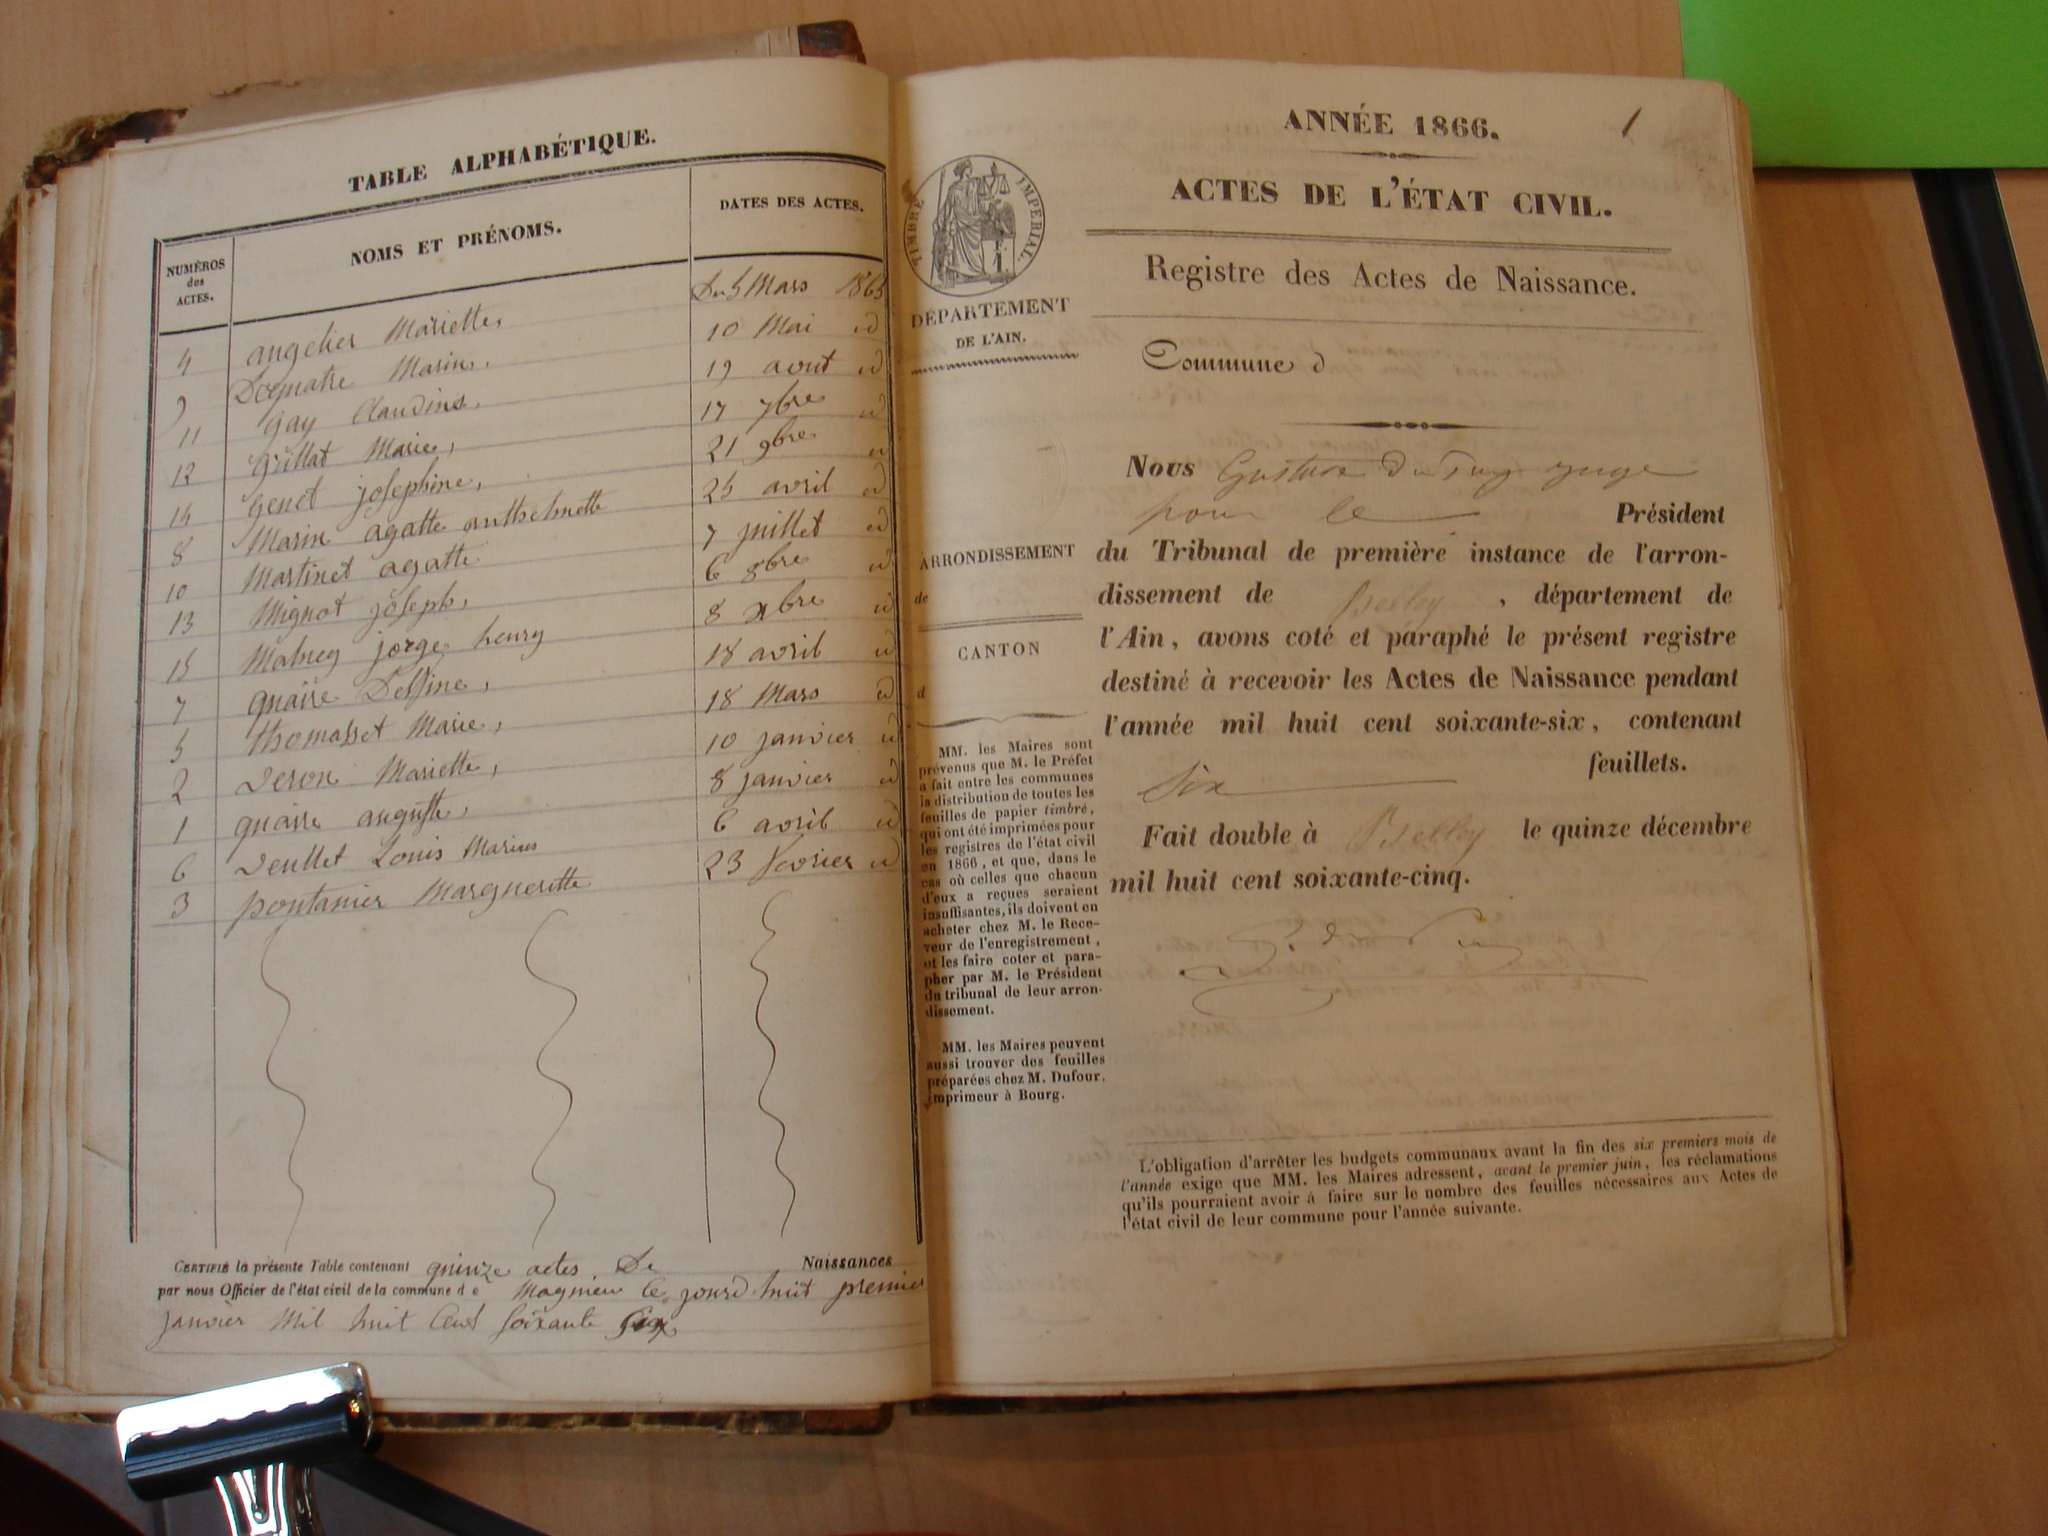 TABLE ALPHABÉTIQUE.
NUMÉROS des ACTES. NOMS ET PRÉNOMS. DATES DES ACTES.
4 angelier Mariette, Du 5 Mars 1865
9 Dormatre Marin, 10 Mai id
11 Gay Claudine, 19 aout id
12 Grillat Marie, 17 7bre id
14 Genet josephine, 21 9bre id
8 Marin agatte anthelmette 25 avril id
10 Martinet agatte 7 juillet id
13 Mignot joseph, 6 8bre id
15 jorge henry 8 xbre id
7 quaire Delfine, 18 avril id
5 thomasset Marie, 18 Mars id
2 Veron Mariette, 10 janvier id
1 quaire auguste, 8 janvier id
6 Veullet Louis Marius 6 avril id
3 pontanier Margueritte 23 fevrier id
CERTIFIÉ la présente Table contenant quinze actes De Naissances
par nous Officier de l'état civil de la commune de Magnieu le jourd huit premier
janvier Mil huit Cent soixante Six
1
ANNÉE 1866.
ACTES DE L'ÉTAT CIVIL.
Registre des Actes de Naissance.
TIMBRE IMPERIAL.
DÉPARTEMENT
DE L'AIN.
Commune d
ARRONDISSEMENT
de
CANTON
d
MM. les Maires sont
prévenus que M. le Préfet
a fait entre les communes
la distribution de toutes les
feuilles de papier timbré,
qui ont été imprimées pour
les registres de l'état civil
en 1866, et que, dans le
cas où celles que chacun
d'eux a reçues seraient
insuffisantes, ils doivent en
acheter chez M. le Rece-
veur de l'enregistrement,
et les faire coter et para-
pher par M. le Président
du tribunal de leur arron-
dissement.
MM. les Maires peuvent
aussi trouver des feuilles
préparées chez M. Dufour,
imprimeur à Bourg.
Nous Gustave Du Puy juge
pour le Président
du Tribunal de première instance de l'arron-
dissement de Belley, département de
l'Ain, avons coté et paraphé le présent registre
destiné à recevoir les Actes de Naissance pendant
l'année mil huit cent soixante-six, contenant
six feuillets.
Fait double à Belley le quinze décembre
mil huit cent soixante-cinq.
G. Du Puy
L'obligation d'arrêter les budgets communaux avant la fin des six premiers mois de
l'année exige que MM. les Maires adressent, avant le premier juin, les réclamations
qu'ils pourraient avoir à faire sur le nombre des feuilles nécessaires aux Actes de
l'état civil de leur commune pour l'année suivante.